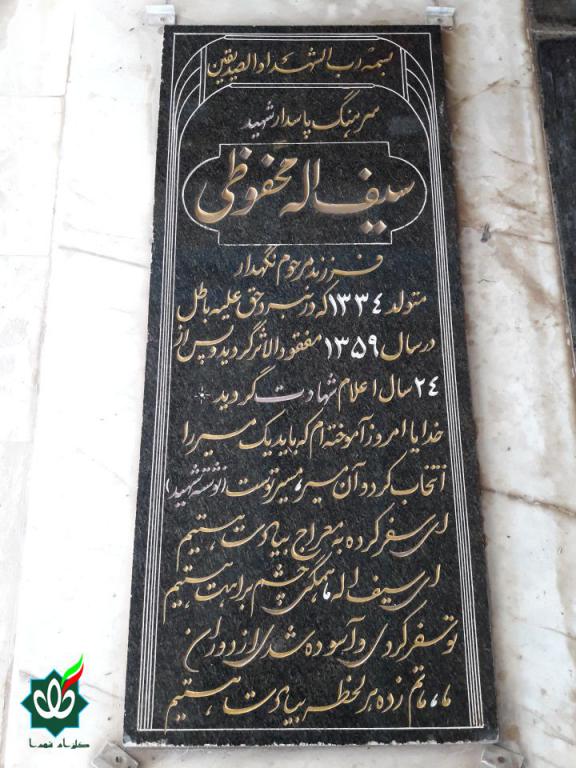 بسمه رب الشهداء و الصدیقین
سرهنگ پاسدار شهید
سیف اله محفوظی
فرزند مرحوم نگهدار
متولد ۱۳۳۴ که در نبرد حق علیه باطل
در سال ۱۳۵۹ مفقودالاثر گردید و پس از
۲۴ سال اعلام شهادت گردید
خدایا امروز آموخته ام که باید یک مسیر را
انتخاب کرد و آن مسیر، مسیر توست (نوشته شهید)
ای سفر کرده به معراج بیادت هستیم
ای سیف اله ما همگی چشم براهت هستیم
تو سفر کردی و آسوده شدی از دوران
ما، ماتم زده هر لحظه بیادت هستیم